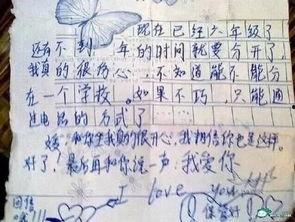 现在已经六年级了
还有不到一年的时间就要分开了,
我真的很伤心,不知道能不能分
在一个学校。如果不巧,只能通
过电话的方式了
嘻!和你坐我真的很开心,我相信你也是这样。
好了,最后再和你说一声:我爱你
I love you!!!
团结
保管好